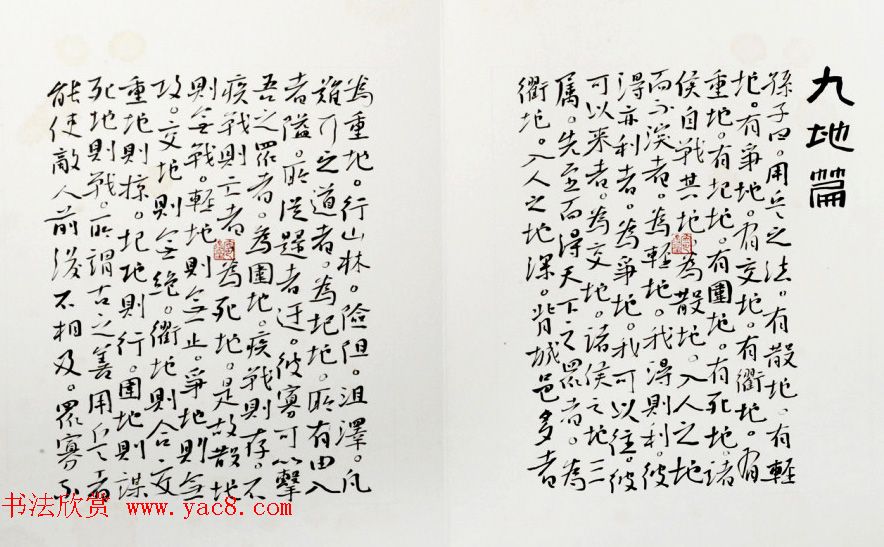 九地篇
孫子曰。用兵之法。有散地。有輕
地。有爭地。有交地。有衢地。有
重地。有圮地。有圍地。有死地。諸
侯自戰其地。為散地。入人之地
而不深者。為輕地。我得則利。彼
得亦利者。為爭地。我可以往。彼
可以来者。為交地。諸侯之地三
属。先至而得天下之眾者。為
衢地。入人之地深。背城邑多者
為重地。行山林。險阻。沮澤。凡
難行之道者。為圮地。所有由入
者隘。所從歸者迂。彼寡可以擊
吾之眾者。為圍地。疾戰則存。不
疾戰則亡者。為死地。是故散地
則無戰。輕地則無止。爭地則無
攻。交地則無絕。衢地則合交
重地則掠。圮地則行。圍地則謀
死地則戰。所謂古之善用兵者
能使敵人前後不相及。眾寡不
书法欣赏 www.yac8.com